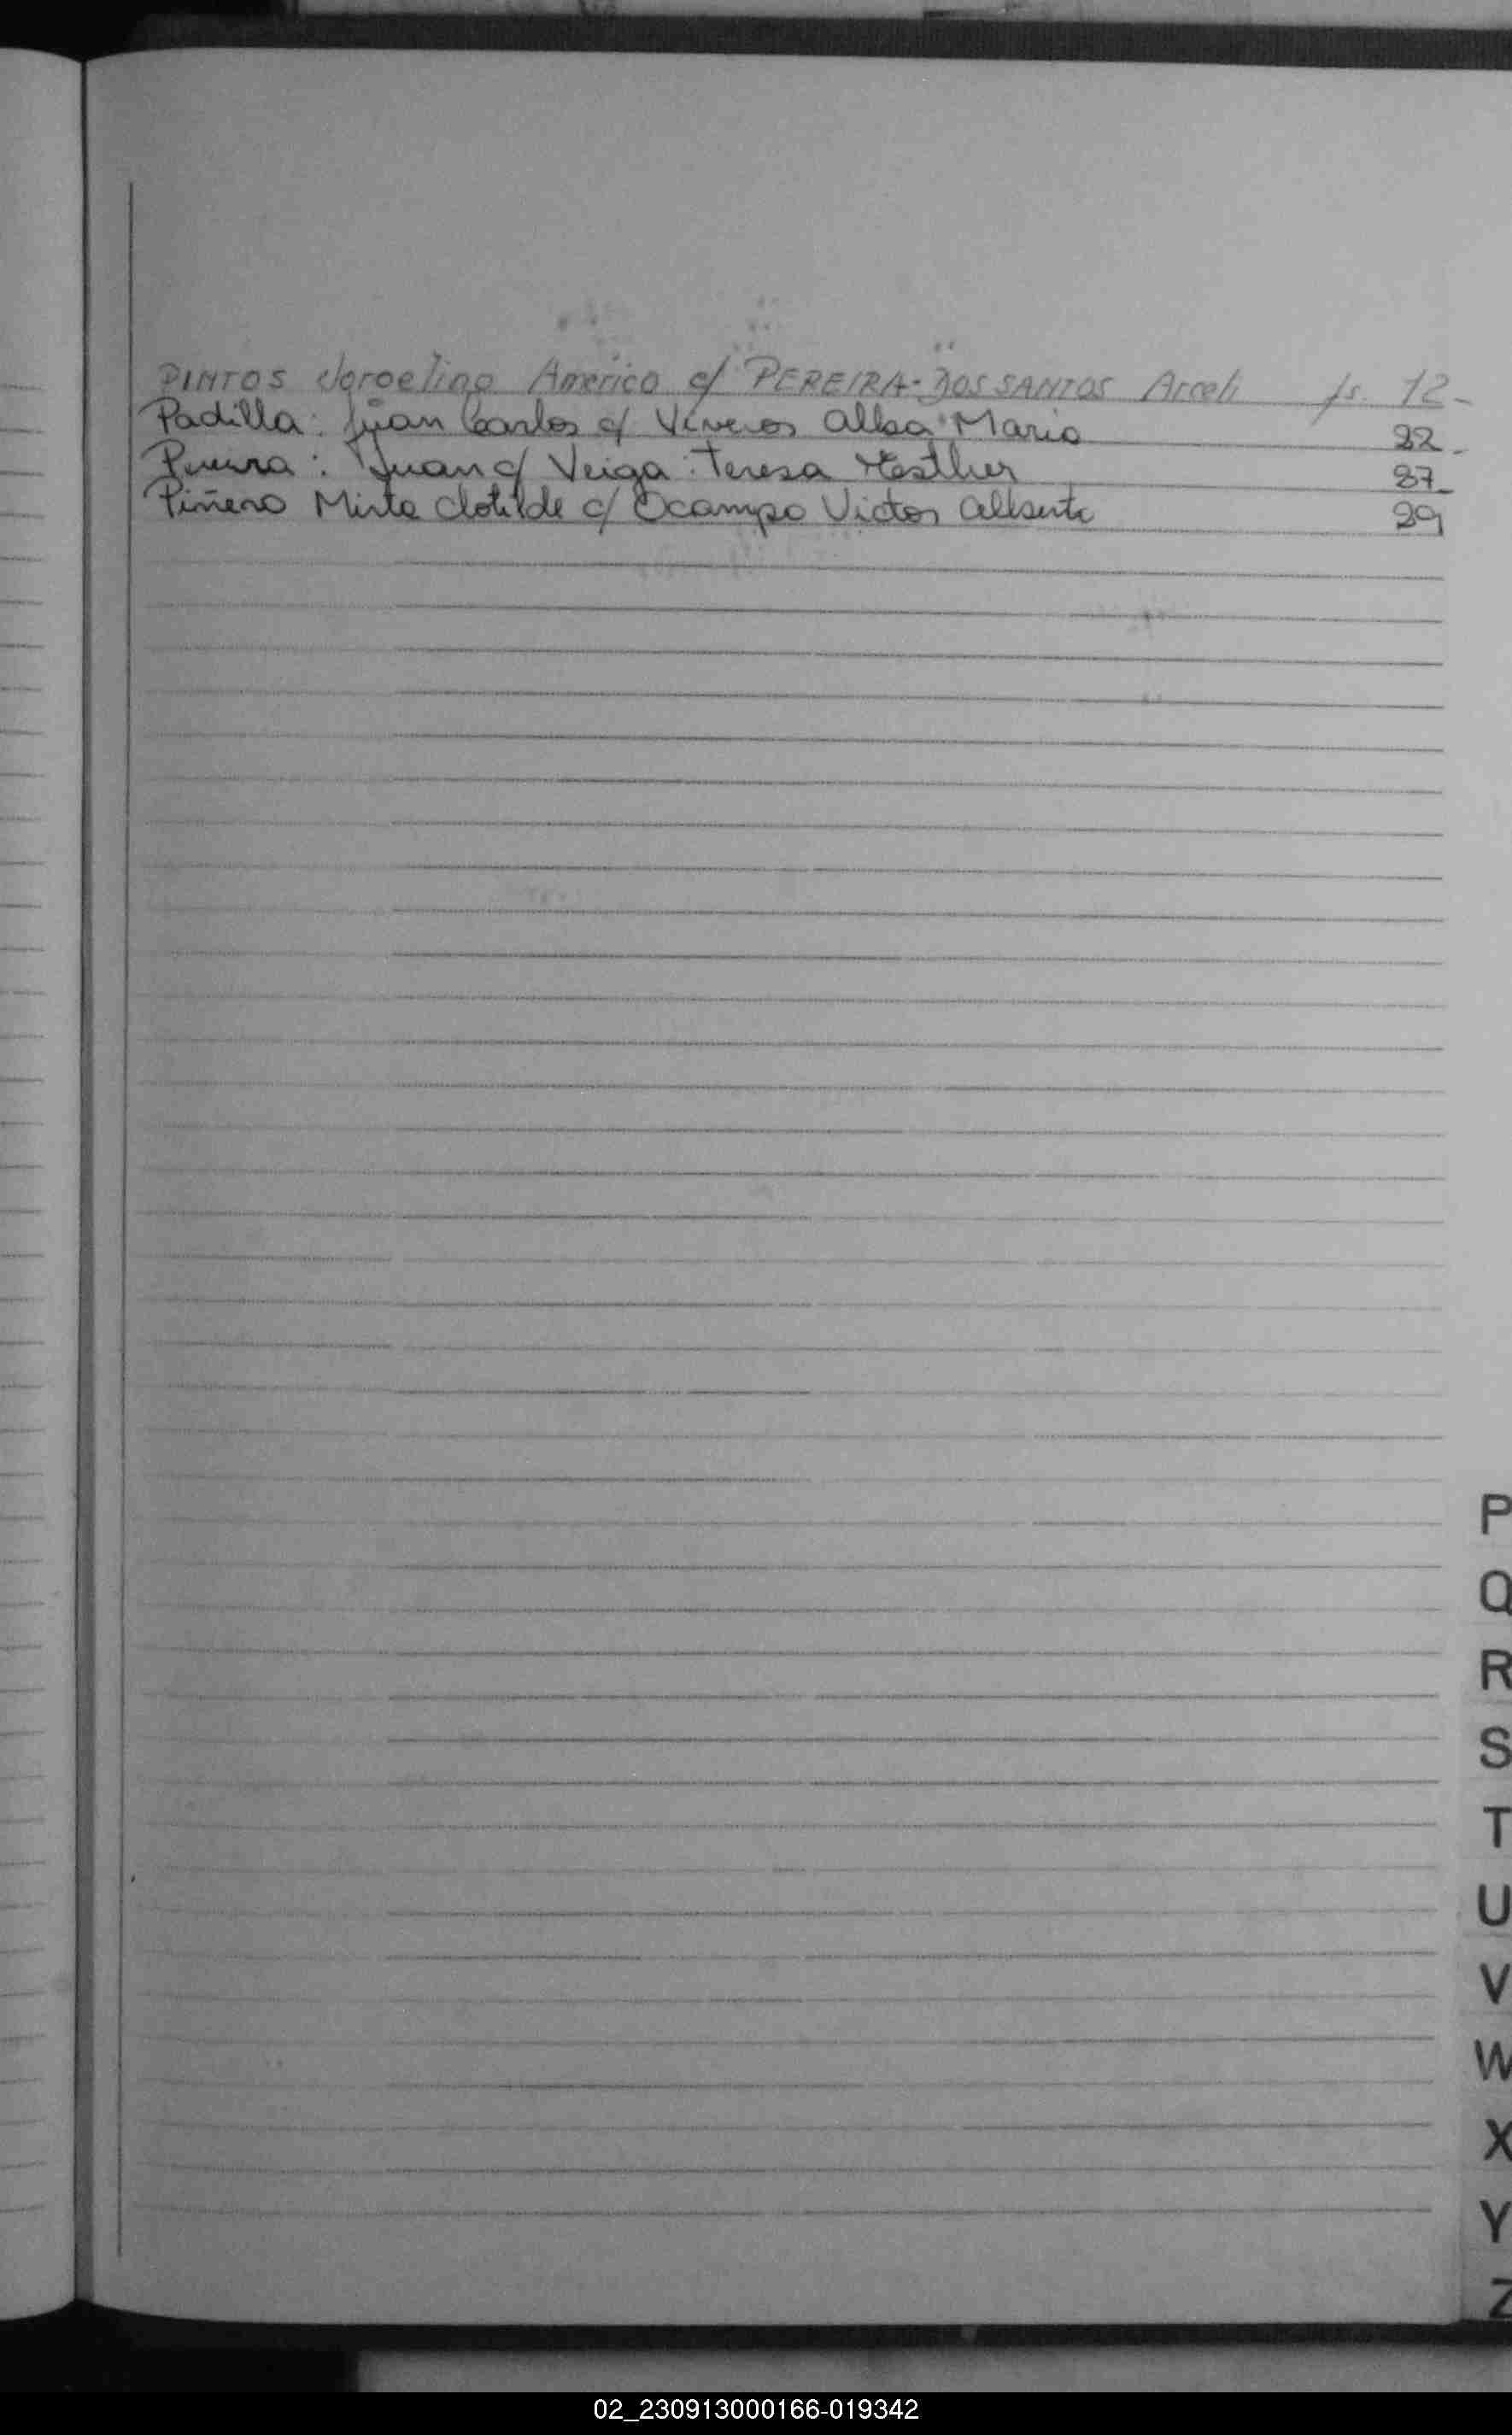 PINTOS Jorgelino Américo c/ PEREIRA-DOS SANTOS Arceli fs. 12-
Padilla: Juan Carlos c/ Viveros Alba Maria 22-
Pereira: Juan c/ Veiga: Teresa Esther 27-
Piñero Mirta Clotilde c/ Ocampo Victor Alberto 29
P
Q
R
S
T
U
V
W
X
Y
Z
02_230913000166-019342